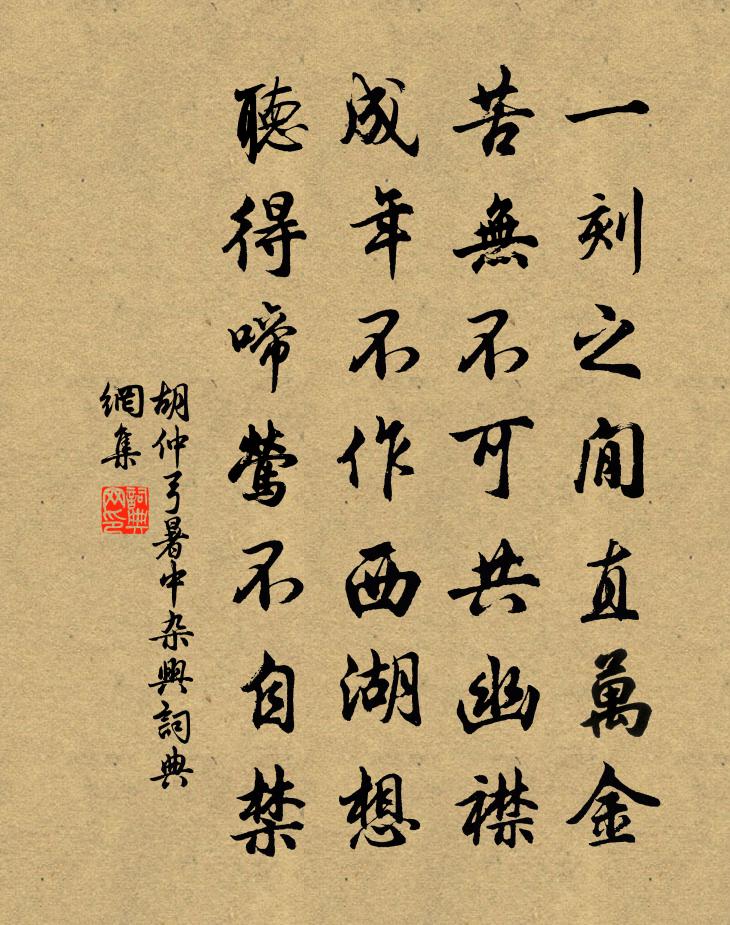 一刻之間直萬金
苦無不可共幽襟
成年不作西湖想
聽得啼鶯不自禁
胡仲弓暑中杂興詞典
網集
詞典
网印